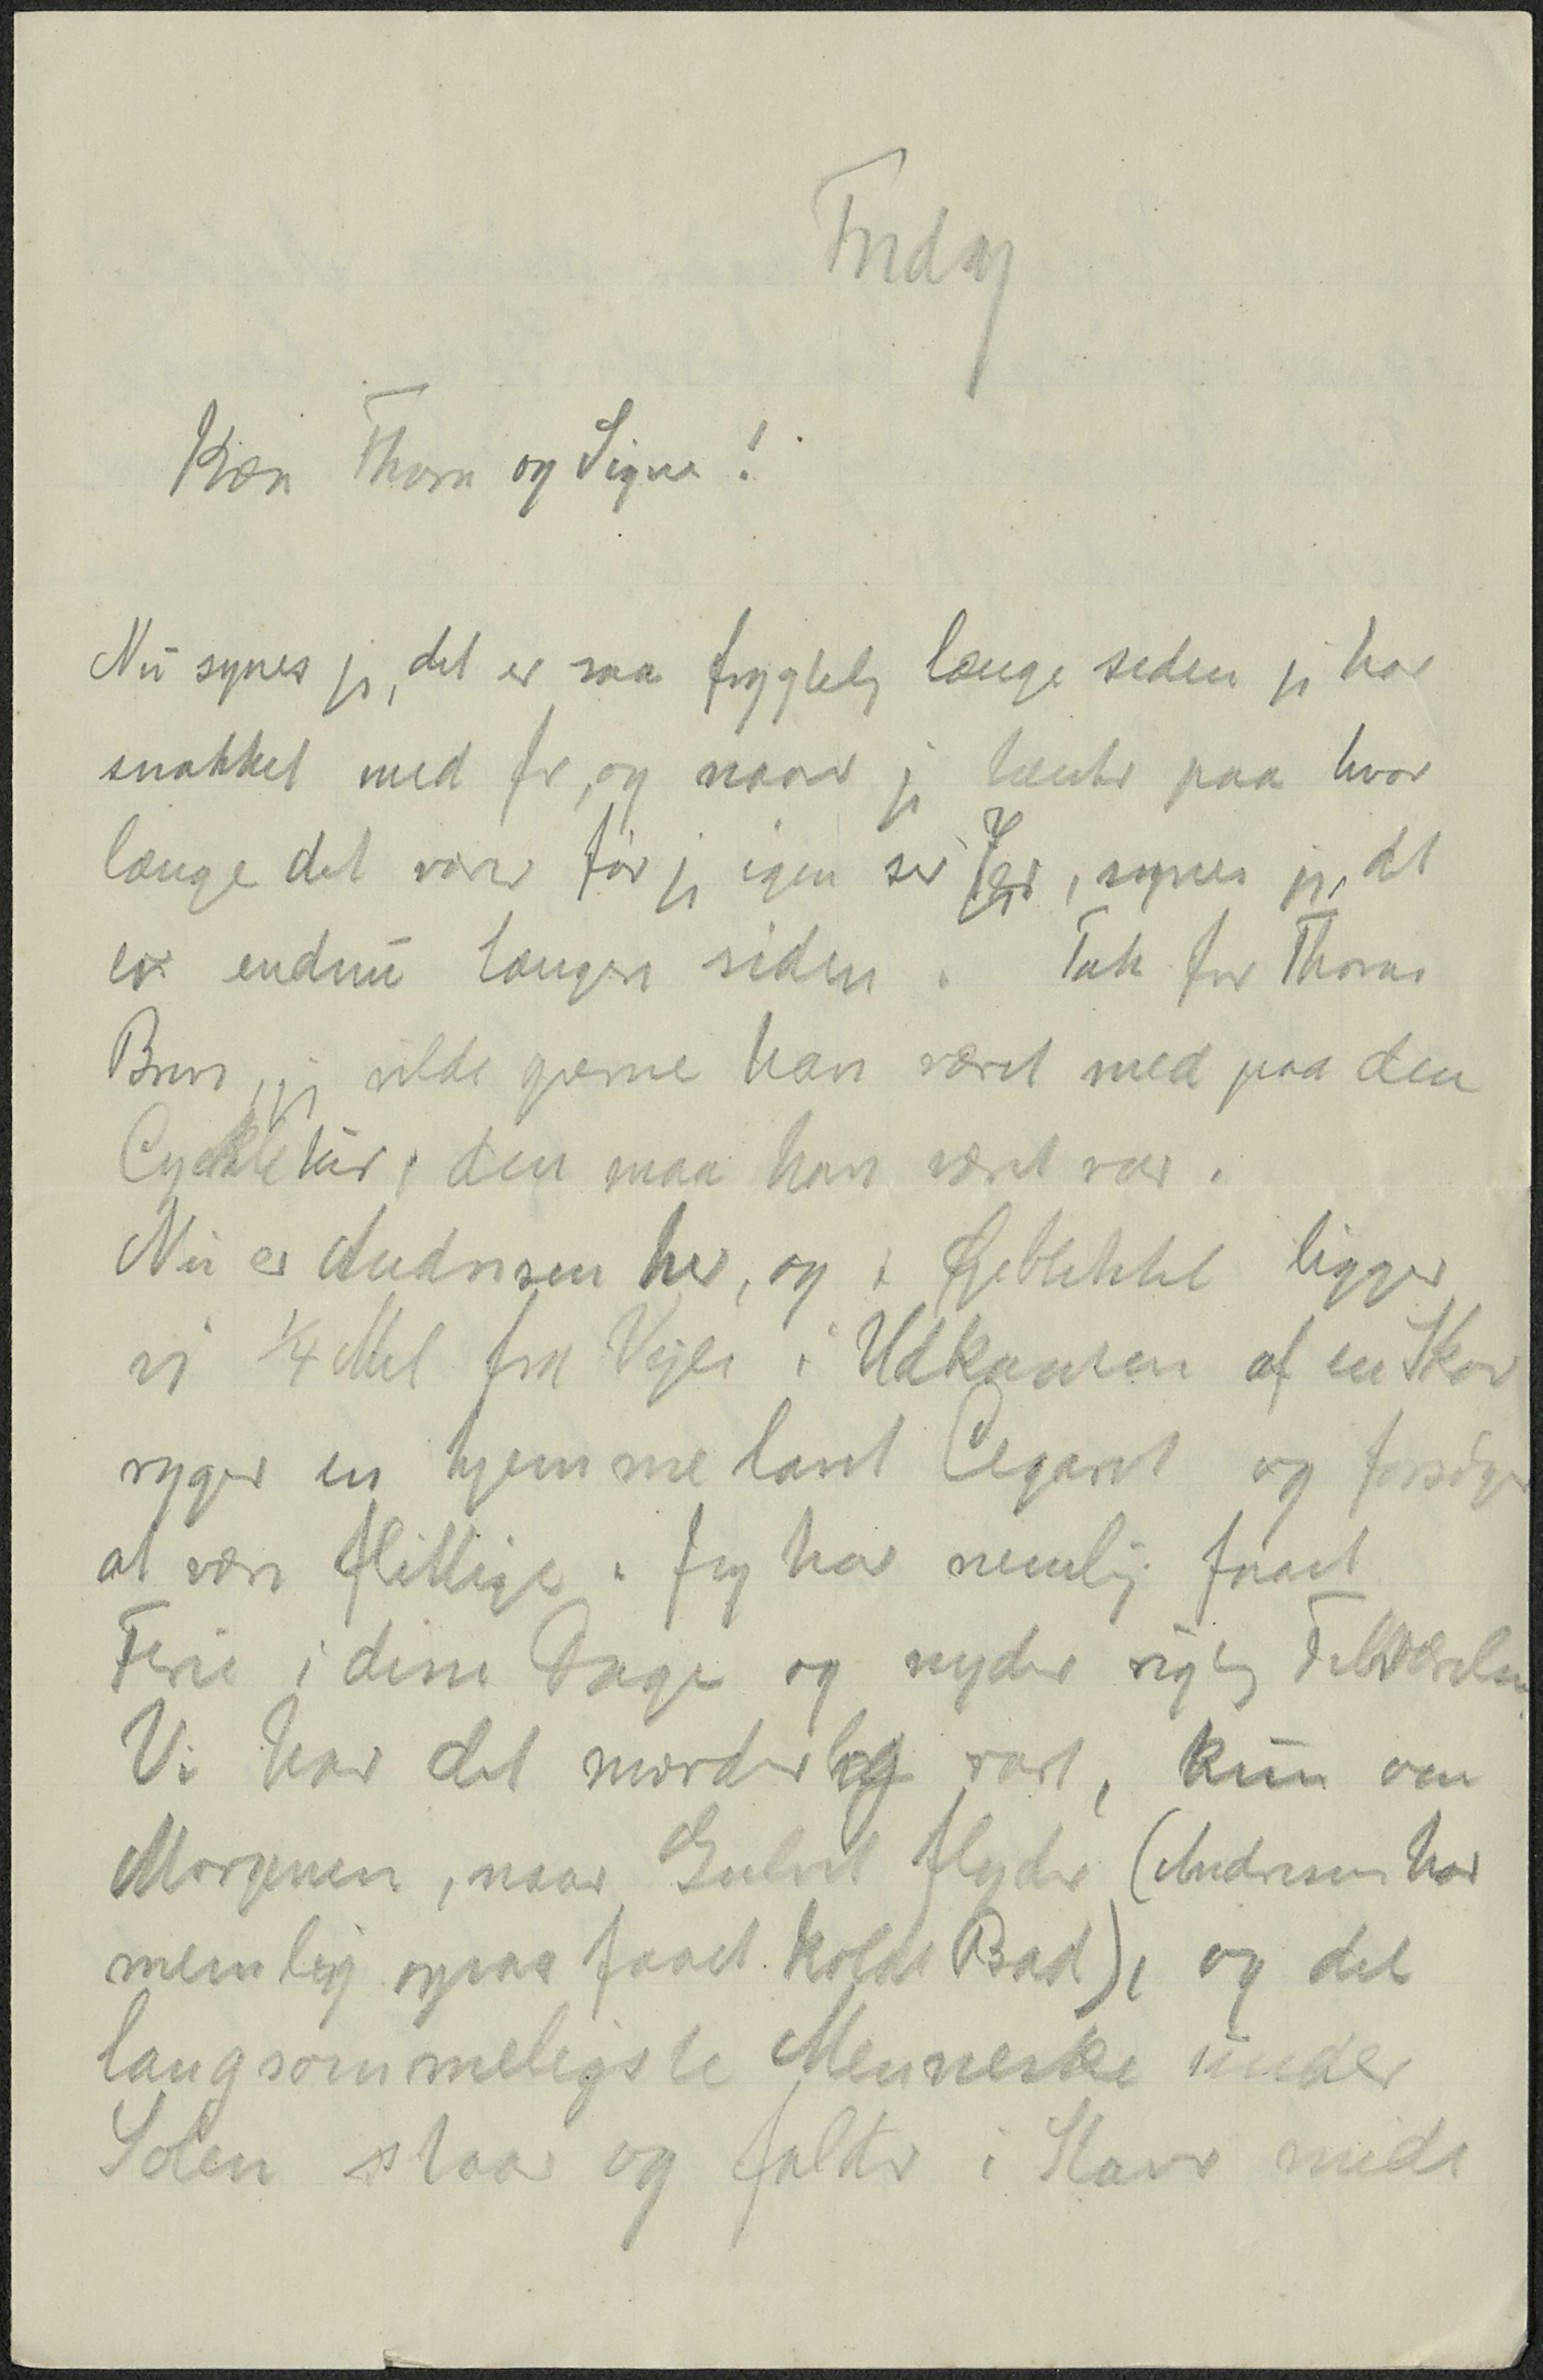 Fredag
Kære Thora og Signe!
Nu synes jeg, det er saa frygtelig længe siden jeg har
snakket med Jer, og naar jeg tænker paa hvor
længe det varer før jeg igen ser Jer, synes jeg, det
er endnu længere siden. Tak for Thoras
Brev, jeg vilde gerne have været med paa den
Cykletur, den maa have været rar.
Nu er Andresen her, og i Øjeblikket ligger
vi 1/4 Mil fra Vejle i Udkanten af en Skov
ryger en hjemmelavet Cigaret og forsøger
at være flittige. Jeg har nemlig faaet
Ferie i disse Dage og nyder rigtig Tilværelsen
Vi har det morderlig rart, kun om
Morgenen, naar Gulvet flyder (Andresen har
nemlig ogsaa faaet koldt Bad), og det
langsommeligste Menneske under
Solen staar og falder i Staver midt